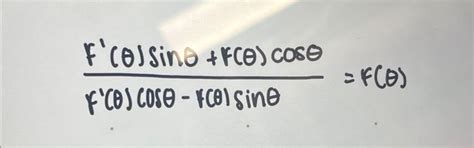 F'(θ) sinθ + F(θ) cosθ
F'(θ) cosθ - F(θ) sinθ = F(θ)